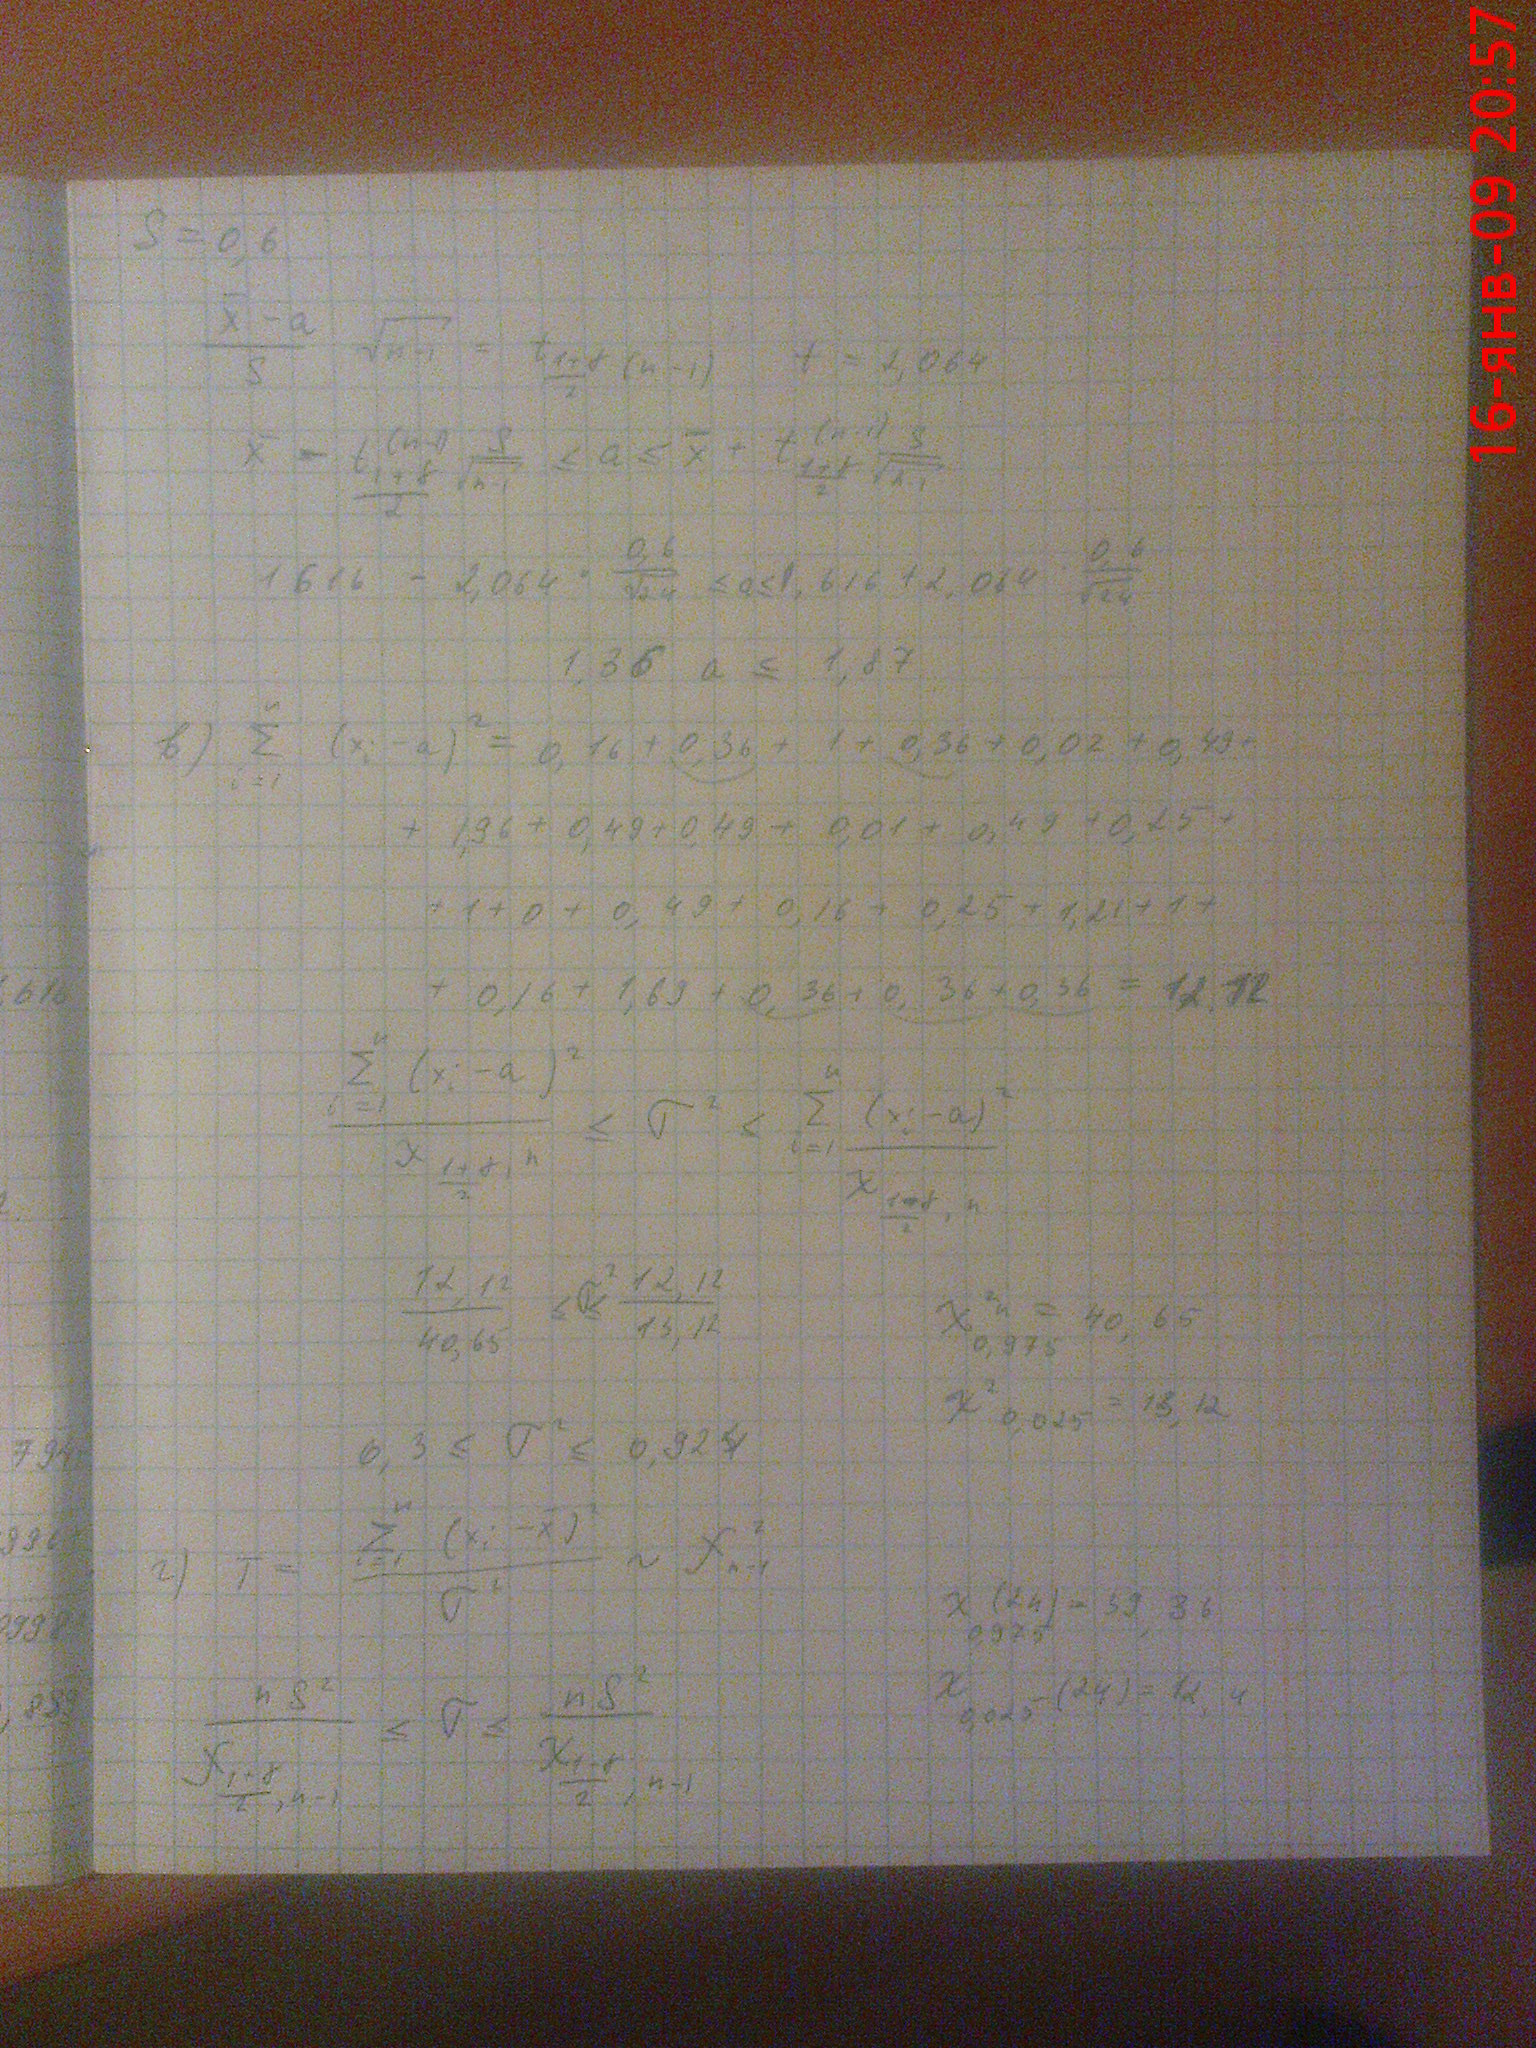 16-ЯНВ-09 20:57
S = 0,6
(x̄ - a)/S √(n-1) = t_{(1+γ)/2} (n-1)   t = 2,064
x̄ - t_{(1+γ)/2}^{(n-1)} S/√(n-1) ≤ a ≤ x̄ + t_{(1+γ)/2}^{(n-1)} S/√(n-1)
1 616 - 2,064 · 0,6/√24 ≤ a ≤ 1,616 + 2,064 · 0,6/√24
1,36 a ≤ 1,87
в) Σ_{i=1}^{n} (x_i - a)² = 0,16 + 0,36 + 1 + 0,36 + 0,02 + 0,49 +
+ 1,96 + 0,49 + 0,49 + 0,01 + 0,49 + 0,25 +
+ 1 + 0 + 0,49 + 0,16 + 0,25 + 1,21 + 1 +
+ 0,16 + 1,69 + 0,36 + 0,36 + 0,36 = 12,12
Σ_{i=1}^{n} (x_i - a)² / χ_{(1+γ)/2, n} ≤ σ² ≤ Σ_{i=1}^{n} (x_i - a)² / χ_{(1-γ)/2, n}
12,12/40,65 ≤ σ² ≤ 12,12/13,12   χ²_{0,975}^{n} = 40,65
χ²_{0,025} = 13,12
0,3 ≤ σ² ≤ 0,924
г) T = Σ_{i=1}^{n} (x_i - x̄)² / σ² ~ χ²_{n-1}
χ_{0,975} (24) = 39,36
χ_{0,025} (24) = 12,4
nS²/χ_{(1+γ)/2, n-1} ≤ σ ≤ nS²/χ_{(1-γ)/2, n-1}
,616
794
996
0998
,889